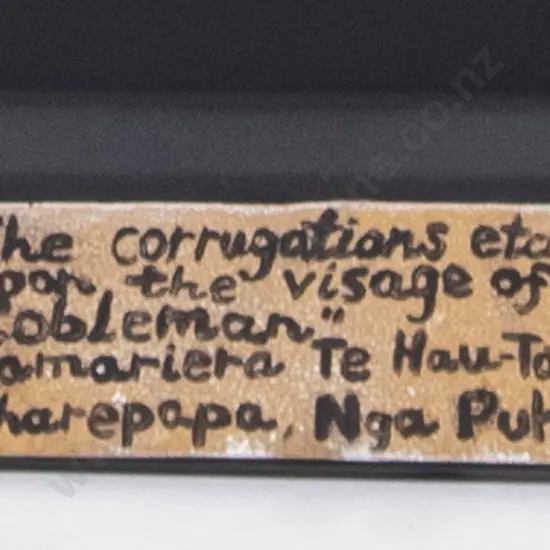 he corrugations etc
pon the visage of
obleman"
amariera Te Hau-Ta
harepapa, Nga Puh